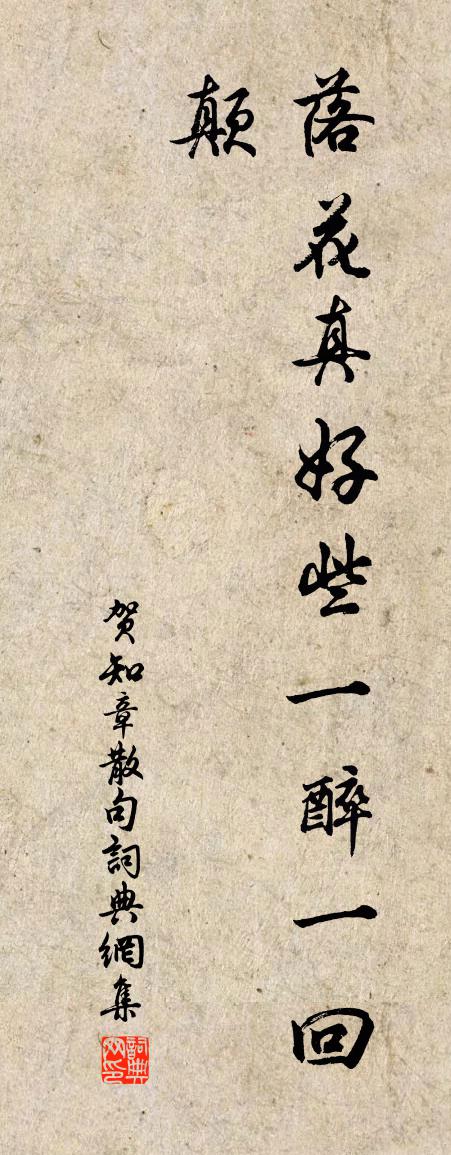 落花真好些一醉一回
颠
贺知章散句詞典網集
詞典网印